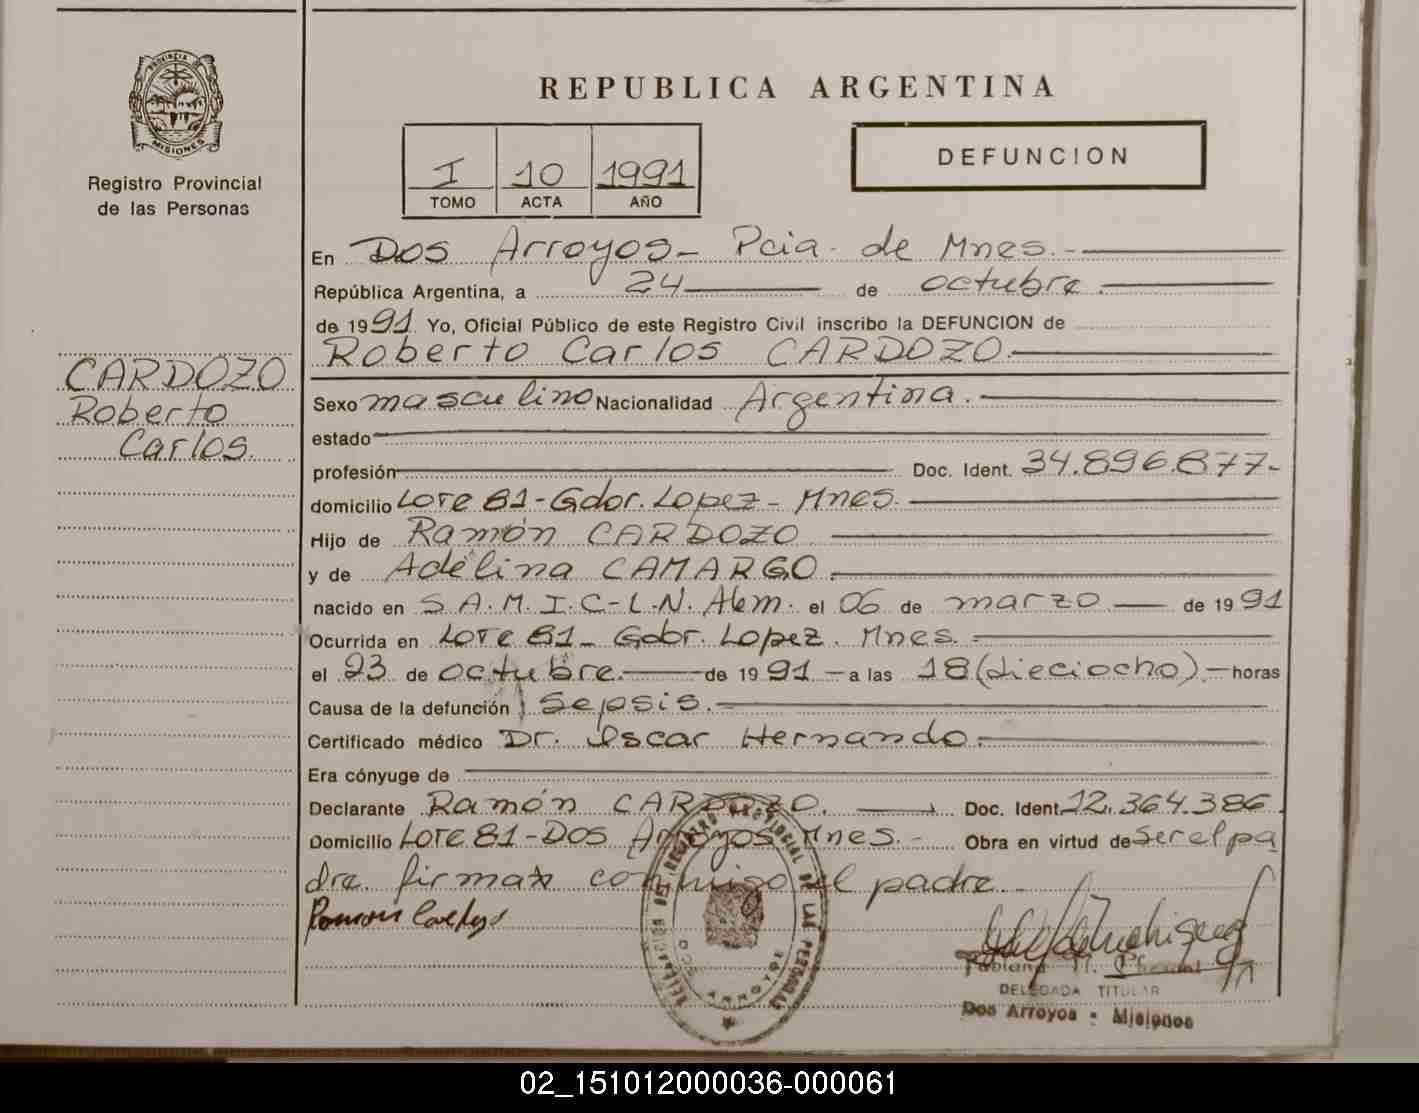 PROVINCIA DE
MISIONES
Registro Provincial
de las Personas
CARDOZO
Roberto
Carlos.
REPUBLICA ARGENTINA
I 10 1991
TOMO ACTA AÑO
DEFUNCION
En Dos Arroyos- Pcia. de Mnes.-
República Argentina, a 24 de octubre.
de 1991 Yo, Oficial Público de este Registro Civil inscribo la DEFUNCION de
Roberto Carlos CARDOZO.
Sexo masculino Nacionalidad Argentina.
estado
profesión Doc. Ident. 34.896.877-
domicilio Lote 81-Gdor. Lopez- Mnes.
Hijo de Ramón CARDOZO
y de Adelina CAMARGO.
nacido en S.A.M.I.C-L.N. Alem. el 06 de marzo de 1991
Ocurrida en Lote 81- Gdor. Lopez. Mnes.
el 23 de octubre. de 1991 - a las 18 (dieciocho). horas
Causa de la defunción Sepsis.
Certificado médico Dr. Oscar Hernando.
Era cónyuge de
Declarante Ramón CARDOZO. Doc. Ident. 12.364.386.
Domicilio Lote 81-Dos Arroyos Mnes.- Obra en virtud de ser el pa
dre. firma conmigo el padre.-
DELEGACION DEL REGISTRO PROVINCIAL DE LAS PERSONAS
DOS ARROYOS
Fabiana
DELEGADA TITULAR
Dos Arroyos - Misiones
02_151012000036-000061